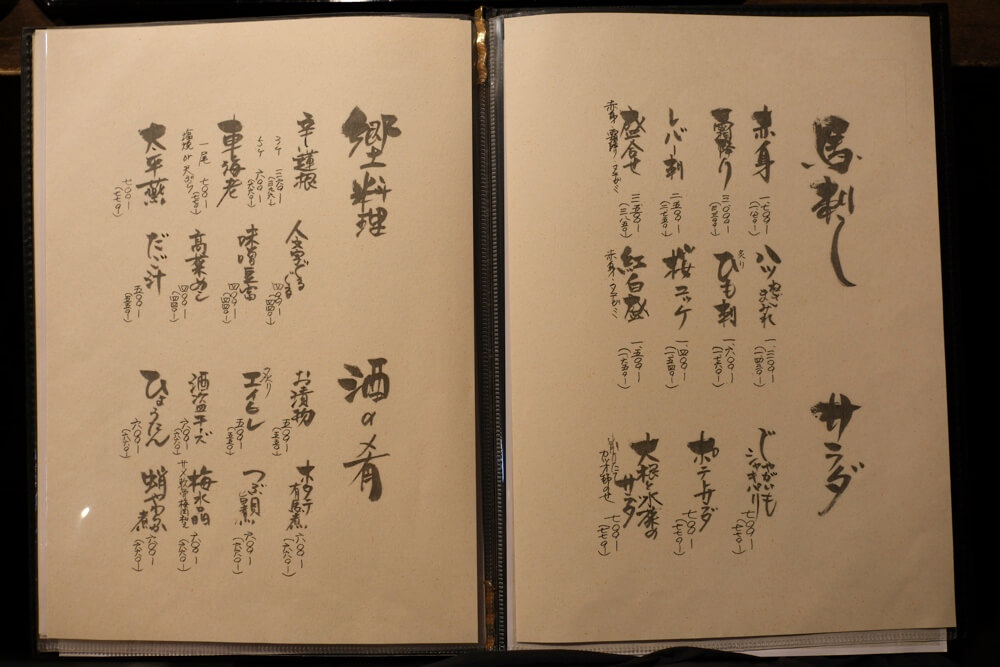 馬刺し
赤身
一、七〇〇ー
霜降り
三、〇〇〇ー
レバー刺
二、五〇〇ー
(二、七五〇ー)
盛合せ
三、五〇〇ー
(三、八五〇ー)
ハツ
一、三〇〇ー
(一、四三〇ー)
炙り
ひも刺
一、六〇〇ー
(一、七六〇ー)
桜ユッケ
一、四〇〇ー
(一、五四〇ー)
紅白盛
一、五〇〇ー
(一、六五〇ー)
サラダ
じゃがいも
シャキシャキ
七〇〇ー
(七七〇ー)
ポテトサラダ
七〇〇ー
(七七〇ー)
大根と水菜の
サラダ
七〇〇ー
(七七〇ー)
郷土料理
辛し蓮根
車海老
一尾 七〇〇ー
(七七〇ー)
塩焼 or 天ぷら
太平燕
七〇〇ー
(七七〇ー)
人文字ぐるぐる
四〇〇ー
(四四〇ー)
味噌豆富
四〇〇ー
(四四〇ー)
高菜めし
四〇〇ー
(四四〇ー)
だご汁
五〇〇ー
(五五〇ー)
酒の肴
お漬物
五〇〇ー
(五五〇ー)
エイヒレ
五〇〇ー
(五五〇ー)
酒盗チーズ
六〇〇ー
(六六〇ー)
ひょうたん
六〇〇ー
(六六〇ー)
ホタテ
有馬煮
六〇〇ー
(六六〇ー)
つぶ貝
旨煮
六〇〇ー
(六六〇ー)
梅水晶
六〇〇ー
(六六〇ー)
蛸やわらか煮
六〇〇ー
(六六〇ー)